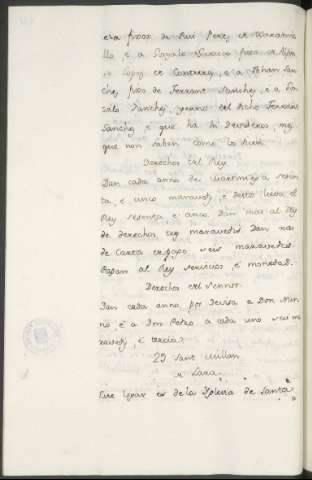 e a fijos de Rui Perez de Xaramie
llo, e a Gonzalo Garcia fijo de Alfon
so Lopez de Contreras, e a Johan San
chez fijo de Ferrant Sanchez, e a Gon
zalo Sanchez yerno del dicho Ferrant
Sanchez, e que há hi Deviseros, mas
que non saben como los dicen.
Derechos del Rey.
Dan cada anno de martiniega seten
ta, e cinco maravedis, e desto lieva el
Rey sesenta e cinco. Dan mas al Rey
de derechos, tres maravedis. Dan mas
de Carta e seis maravedis.
Pagan al Rey servicios, e moneda.
Derechos del Sennor.
Dan cada anno por devisa a Don Nun
no é a Don Pedro a cada uno seis ma
ravedis, é tercia.
29 Sant Millan
de Lara.
Este logar es de la Iglesia de Santa